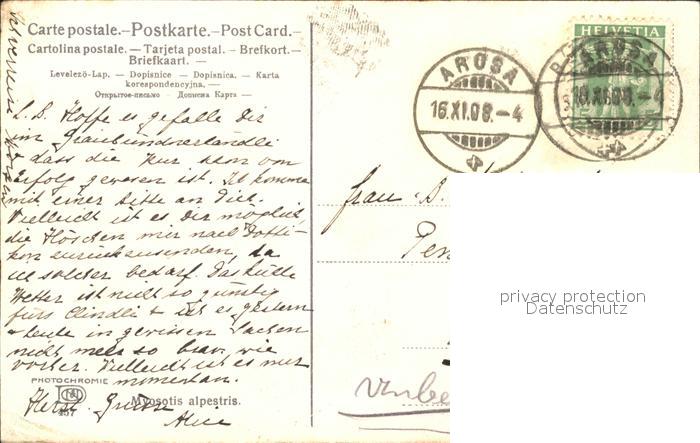 Carte postale.–Postkarte.–Post Card.–
Cartolina postale. — Tarjeta postal. – Brefkort. –
Briefkaart. —
Levelező-Lap. — Dopisnice — Dopisnica. — Karta
korespondencyjna. —
Открытое-письмо — Дописна Карта —
HELVETIA
AROSA
16.XI.08.–4
AROSA
16.XI.08.–4
L. B. Hoffe es gefalle Dir
im Graubündnerländli
dass die Kur von
Erfolg gewesen ist. Ich komme
mit einer Bitte an Dich.
Vielleicht ist es Dir möglich,
die Höschen mir nach
zurückzusenden, da
ich solcher bedarf. Das kühle
Wetter ist nicht so günstig
fürs Clindli & ist es gestern
& heute in gewissen Sachen
nicht mehr so brav, wie
vorher. Vielleicht ist es nur
momentan.
Herzl. Grüsse
Alice
Frau B.
Pen
PHOTOCHROMIE
457
Myosotis alpestris.
privacy protection
Datenschutz